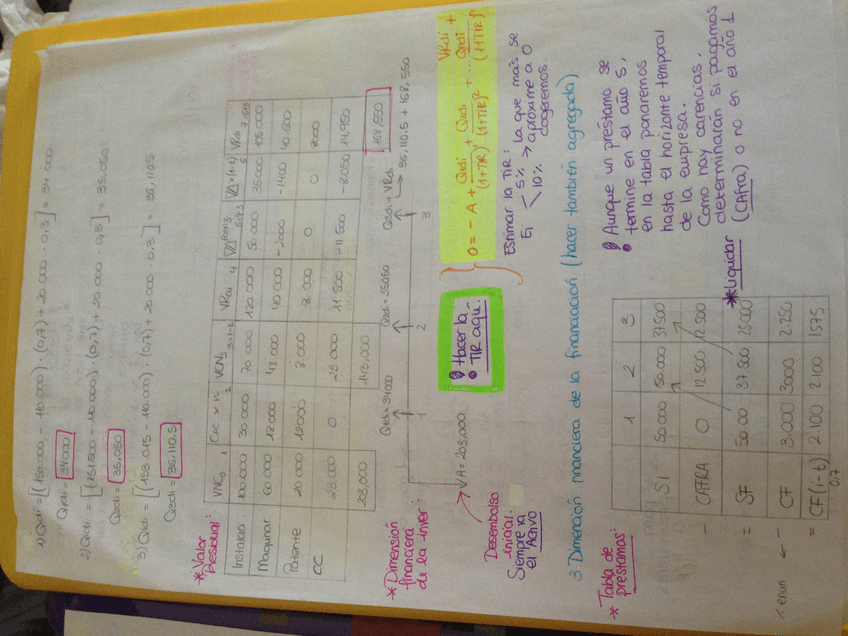 1) Qxdi = [(150.000 - 110.000) · (0,7) + 20.000 · 0,3] = 34.000
Qxdi = 34000
2) Qxdi = [(151.500 - 110.000) · (0,7) + 20.000 · 0,3] = 35.050
Qxdi = 35.050
3) Qxdi = [(153.015 - 110.000) · (0,7) + 20.000 · 0,3] = 36.110,5
Qxdi = 36.110,5
* Valor Residual:
VNC0 1 CAC x n 2 VCN3 3=1-2 VRdi 4 5=4-3 x(1-t) 6 VRdi
Instalac. 100.000 30.000 70.000 120.000 50.000 35000 105.000
Maquinar 60.000 18000 42.000 40.000 -2000 -1400 40.600
Patente 20.000 12000 8000 8.000 0 0 8000
CC 23.000 0 23.000 11.500 -11.500 -8.050 14.950
143.000 168.550
* Dimensión financiera de la inver:
Qxdi = 34000 Qxdi = 35050 Qxdi + VRdi → 36.110,5 + 168.550
1 2 3
VA = 203.000
Desembolso inicial. Siempre va el Activo
Hacer la TIR aquí.
0 = - A + Qxdi/(1+TIR) + Qxdi/(1+TIR)² + ... VRdi + Qxdi/(1+TIR)
Estimar la TIR:
Ej 5% 10% → la que más se aproxime a 0 cogeremos
3 Dimensión financiera de la financiación (hacer también agregada)
* Tabla de préstamos:
1 2 3
SI 50.000 50.000 37.500
- CAFRA 0 12.500 12.500
= SF 50.00 37.500 25.000
- CF 3.000 3000 2.250
= CF(1-t) 2.100 2.100 1575
0,7
Aunque un préstamo se
termine en el año 5,
en la tabla pondremos
hasta el horizonte temporal
de la empresa.
Como hay carencias,
determinarán si pagamos
(CAfra) o no en el año 1
* Liquidar